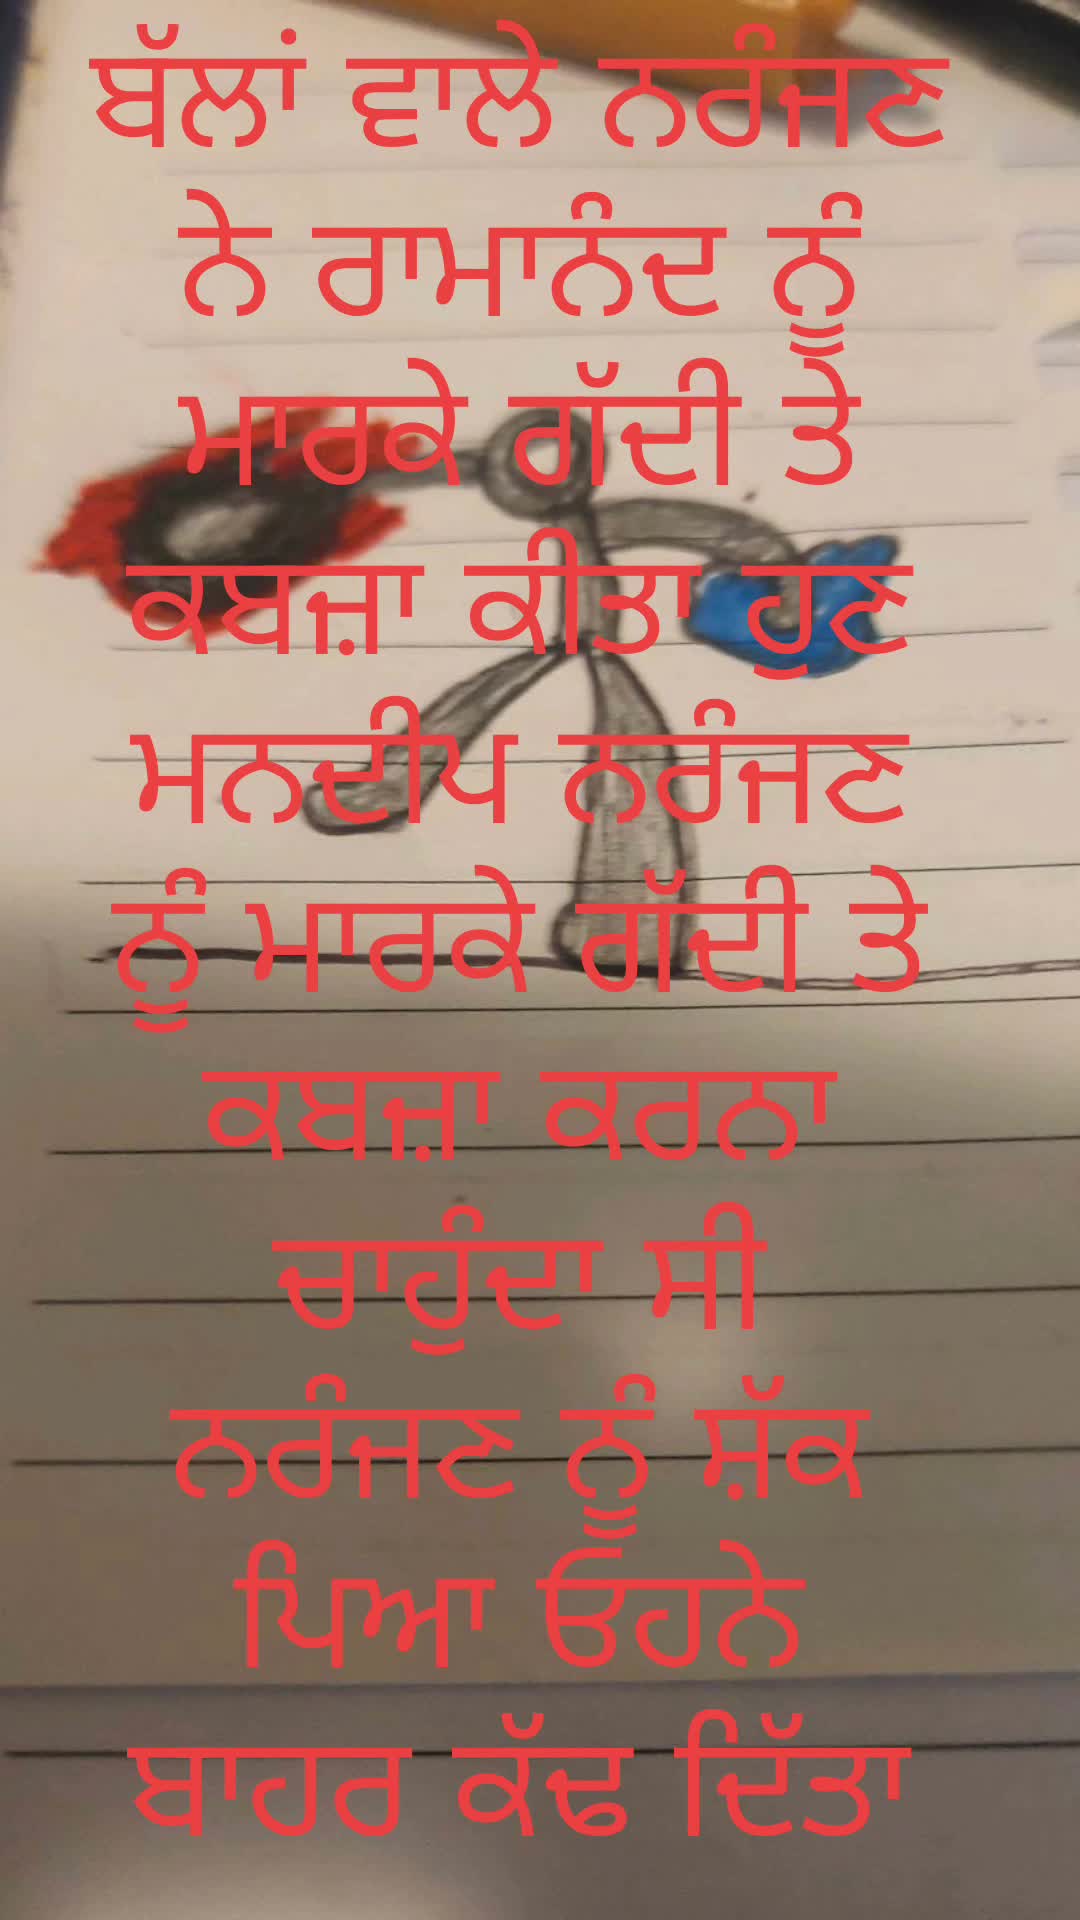 ਬੱਲਾਂ ਵਾਲੇ ਨਰੰਜਣ
ਨੇ ਰਾਮਾਨੰਦ ਨੂੰ
ਮਾਰਕੇ ਗੱਦੀ ਤੇ
ਕਬਜ਼ਾ ਕੀਤਾ ਹੁਣ
ਮਨਦੀਪ ਨਰੰਜਣ
ਨੂੰ ਮਾਰਕੇ ਗੱਦੀ ਤੇ
ਕਬਜ਼ਾ ਕਰਨਾ
ਚਾਹੁੰਦਾ ਸੀ
ਨਰੰਜਣ ਨੂੰ ਸ਼ੱਕ
ਪਿਆ ਓਹਨੇ
ਬਾਹਰ ਕੱਢ ਦਿੱਤਾ